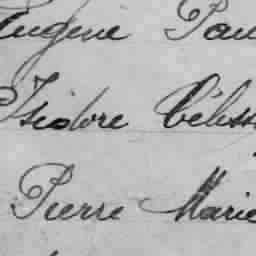 Eugène Pau
Isidore Céles
Pierre Marie